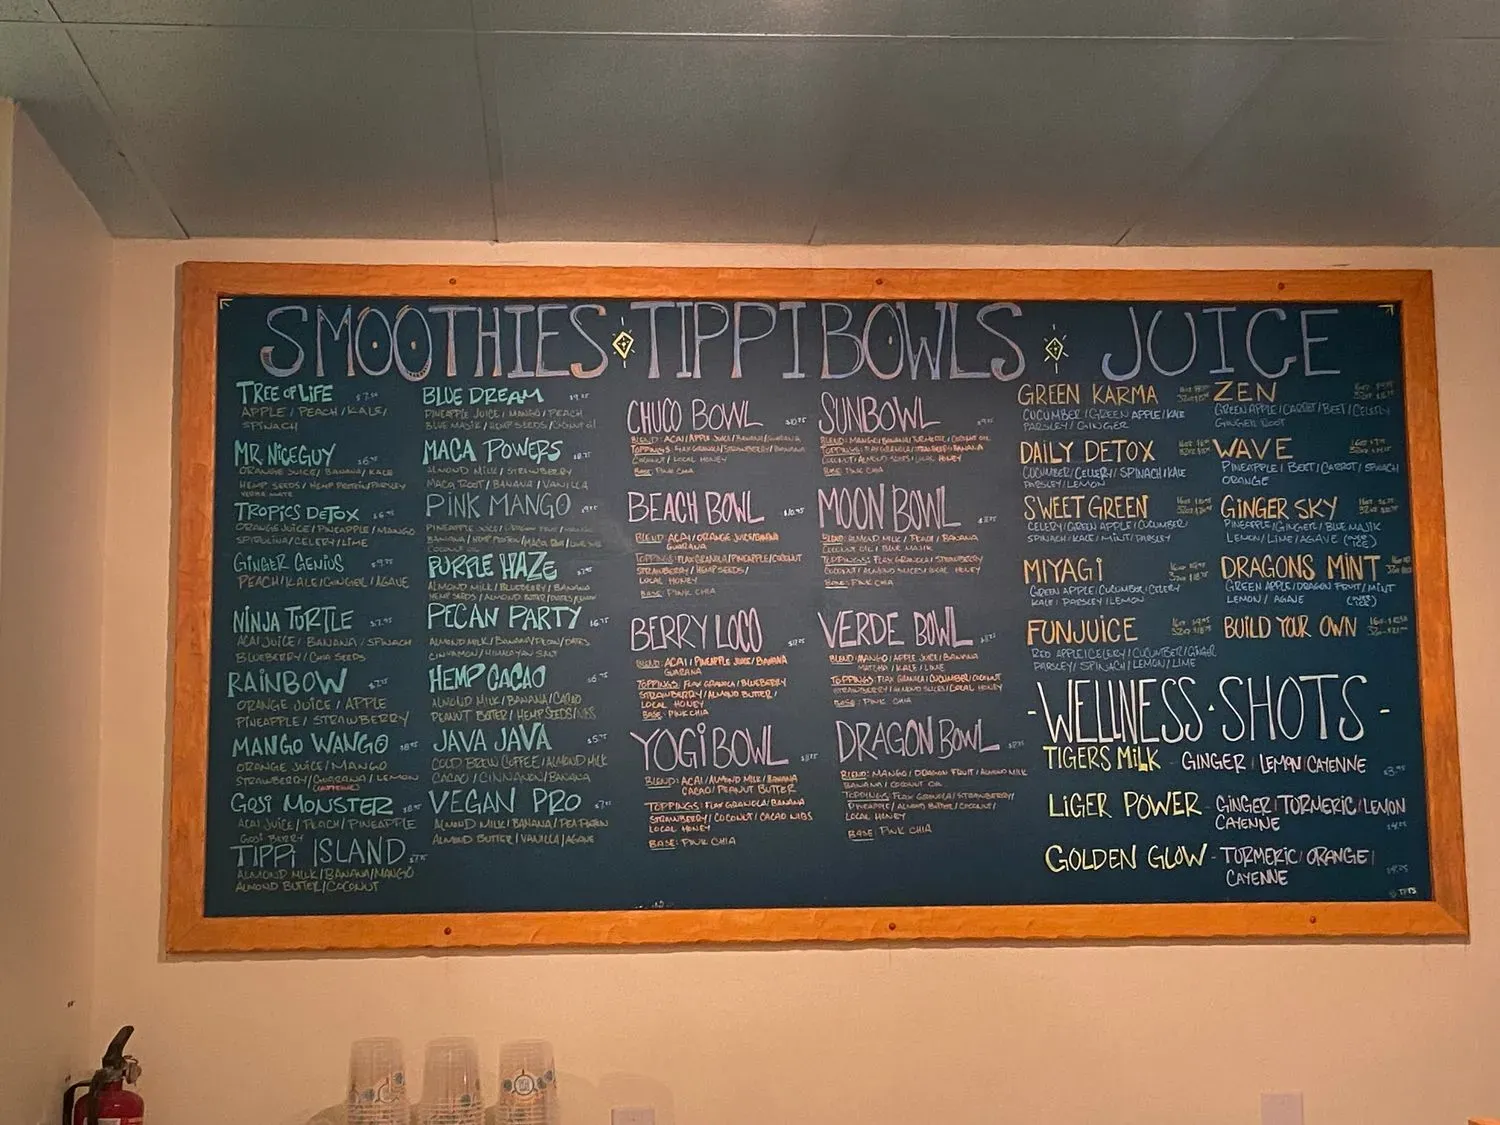 SMOOTHIES TIPPI BOWLS JUICE
TREE OF LIFE
APPLE / PEACH / KALE /
SPINACH
MR. NICE GUY
ORANGE JUICE / BANANA / KALE
HEMP SEEDS / HEMP PROTEIN / PARSLEY
YERBA MATE
TROPICS DETOX
ORANGE JUICE / PINEAPPLE / MANGO
SPIRULINA / CELERY / LIME
GINGER GENIUS
PEACH / KALE / GINGER / AGAVE
NINJA TURTLE
ACAI JUICE / BANANA / SPINACH
BLUEBERRY / CHIA SEEDS
RAINBOW
ORANGE JUICE / APPLE
PINEAPPLE / STRAWBERRY
MANGO WANGO
ORANGE JUICE / MANGO
STRAWBERRY / GUARANA / LEMON
GOJI MONSTER
ACAI JUICE / PEACH / PINEAPPLE
GOJI BERRY
TIPPI ISLAND
ALMOND MILK / BANANA / MANGO
ALMOND BUTTER / COCONUT
BLUE DREAM
PINEAPPLE JUICE / MANGO / PEACH
BLUE MAJIK / HEMP SEEDS / COCONUT OIL
MACA POWERS
ALMOND MILK / STRAWBERRY
MACA ROOT / BANANA / VANILLA
PINK MANGO
PURPLE HAZE
ALMOND MILK / BLUEBERRY / BANANA
PECAN PARTY
ALMOND MILK / BANANA / PECAN / DATES
CINNAMON / HIMALAYAN SALT
HEMP CACAO
ALMOND MILK / BANANA / CACAO
PEANUT BUTTER / HEMP SEEDS / NIBS
JAVA JAVA
COLD BREW COFFEE / ALMOND MILK
CACAO / CINNAMON / BANANA
VEGAN PRO
ALMOND MILK / BANANA / PEA PROTEIN
ALMOND BUTTER / VANILLA / AGAVE
CHUCO BOWL
BLEND: ACAI / APPLE JUICE / BANANA / GUARANA
TOPPINGS: FLAX GRANOLA / STRAWBERRY / BANANA
COCONUT / LOCAL HONEY
BASE: PINK CHIA
BEACH BOWL $10.95
BLEND: ACAI / ORANGE JUICE / BANANA
GUARANA
TOPPINGS: FLAX GRANOLA / PINEAPPLE / COCONUT
STRAWBERRY / HEMP SEEDS /
LOCAL HONEY
BASE: PINK CHIA
BERRY LOCO
BLEND: ACAI / PINEAPPLE JUICE / BANANA
GUARANA
TOPPINGS: FLAX GRANOLA / BLUEBERRY
STRAWBERRY / ALMOND BUTTER /
LOCAL HONEY
BASE: PINK CHIA
YOGI BOWL
BLEND: ACAI / ALMOND MILK / BANANA
CACAO / PEANUT BUTTER
TOPPINGS: FLAX GRANOLA / BANANA
STRAWBERRY / COCONUT / CACAO NIBS
LOCAL HONEY
BASE: PINK CHIA
SUNBOWL
BLEND: MANGO / BANANA / TURMERIC / COCONUT OIL
TOPPINGS: FLAX GRANOLA / STRAWBERRY / BANANA
COCONUT / ALMOND SLICES / LOCAL HONEY
BASE: PINK CHIA
MOON BOWL
BLEND: ALMOND MILK / PEACH / BANANA
COCONUT OIL / BLUE MAJIK
TOPPINGS: FLAX GRANOLA / STRAWBERRY
COCONUT / ALMOND SLICES / LOCAL HONEY
BASE: PINK CHIA
VERDE BOWL
BLEND: MANGO / APPLE JUICE / BANANA
MATCHA / KALE / LIME
TOPPINGS: FLAX GRANOLA / CUCUMBER / COCONUT
STRAWBERRY / ALMOND SLICES / LOCAL HONEY
BASE: PINK CHIA
DRAGON BOWL
BLEND: MANGO / DRAGON FRUIT / ALMOND MILK
BANANA / COCONUT OIL
TOPPINGS: FLAX GRANOLA / STRAWBERRY /
PINEAPPLE / ALMOND BUTTER / COCONUT /
LOCAL HONEY
BASE: PINK CHIA
GREEN KARMA
CUCUMBER / GREEN APPLE / KALE
PARSLEY / GINGER
DAILY DETOX
CUCUMBER / CELERY / SPINACH / KALE
PARSLEY / LEMON
SWEET GREEN
CELERY / GREEN APPLE / CUCUMBER
SPINACH / KALE / MINT / PARSLEY
MIYAGI
GREEN APPLE / CUCUMBER / CELERY
KALE / PARSLEY / LEMON
FUNJUICE
RED APPLE / CELERY / CUCUMBER / GINGER
PARSLEY / SPINACH / LEMON / LIME
ZEN
GREEN APPLE / CARROT / BEET / CELERY
GINGER ROOT
WAVE
PINEAPPLE / BEET / CARROT / SPINACH
ORANGE
GINGER SKY
PINEAPPLE / GINGER / BLUE MAJIK
LEMON / LIME / AGAVE
DRAGONS MINT
GREEN APPLE / DRAGON FRUIT / MINT
LEMON / AGAVE
BUILD YOUR OWN
- WELLNESS · SHOTS -
TIGERS MILK - GINGER / LEMON / CAYENNE
LIGER POWER - GINGER / TURMERIC / LEMON
CAYENNE
GOLDEN GLOW - TURMERIC / ORANGE /
CAYENNE